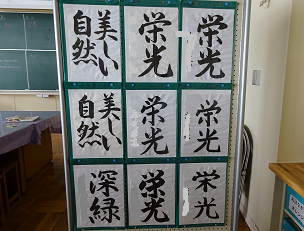 美しい
自然
栄光
栄光
美しい
自然
栄光
栄光
深緑
栄光
栄光